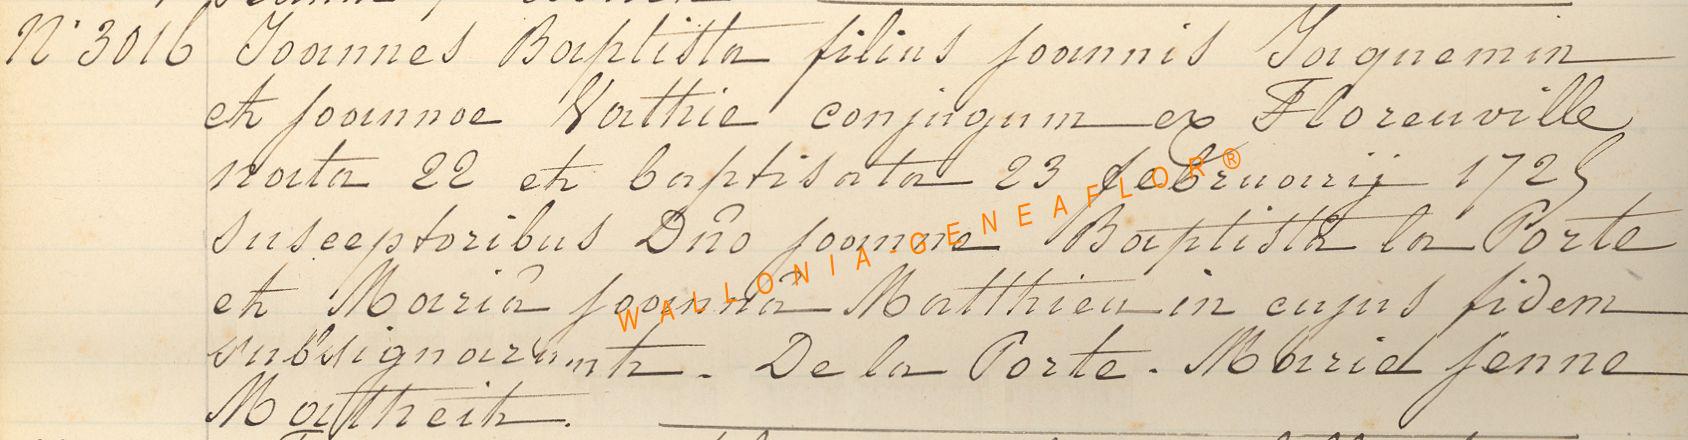 N° 3016 Joannes Baptista filius Joannis Jaquemin
et Joannae Vathie conjugum ex Florenville
nata 22 et baptisata 23 februarij 1725
susceptoribus Dño Joanne Baptista la Porte
et Mariâ Joannâ Matthieu in cujus fidem
subsignarunt. De la Porte. Marie Jenne
Mattheit.
WALLONIA-GENEAFLOR®